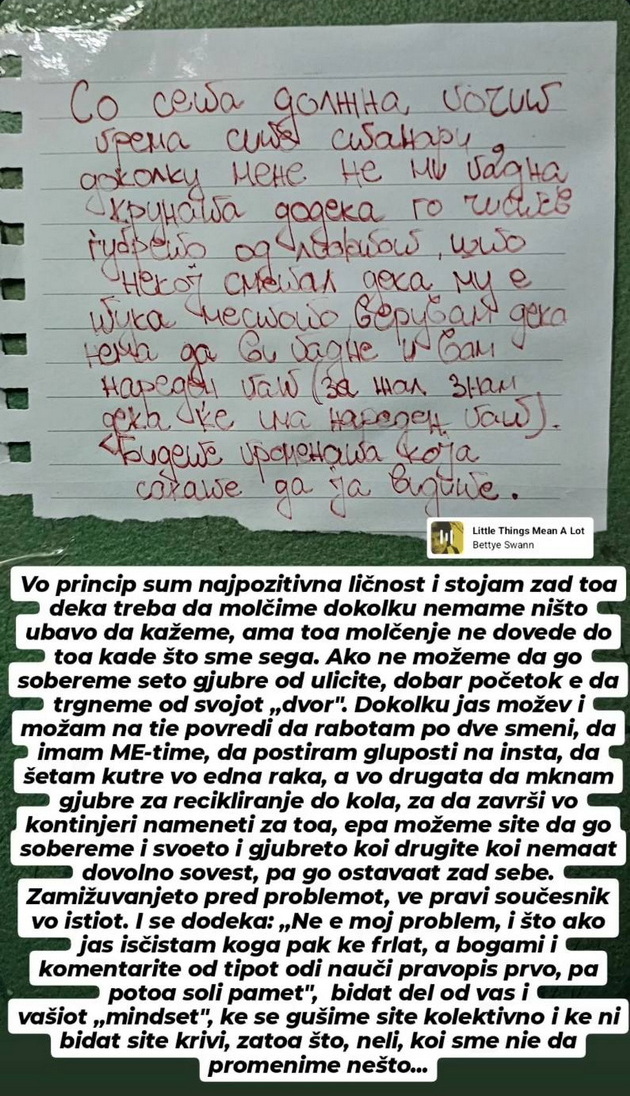 Со сета должна почит
према сите станари,
доколку мене не ми падна
круната додека го чистев
ѓубрето од , што
некој сметал дека му е
тука местото, верувам дека
нема да ви падне и вам
нареден пат (за жал знам
дека ќе има нареден пат).
Бидете промената која
сакате да ја видите.
Little Things Mean A Lot
Bettye Swann
Vo princip sum najpozitivna ličnost i stojam zad toa
deka treba da molčime dokolku nemame ništo
ubavo da kažeme, ama toa molčenje ne dovede do
toa kade što sme sega. Ako ne možeme da go
sobereme seto gjubre od ulicite, dobar početok e da
trgneme od svojot „dvor". Dokolku jas možev i
možam na tie povredi da rabotam po dve smeni, da
imam ME-time, da postiram gluposti na insta, da
šetam kutre vo edna raka, a vo drugata da mknam
gjubre za recikliranje do kola, za da završi vo
kontinjeri nameneti za toa, epa možeme site da go
sobereme i svoeto i gjubreto koi drugite koi nemaat
dovolno sovest, pa go ostavaat zad sebe.
Zamižuvanjeto pred problemot, ve pravi součesnik
vo istiot. I se dodeka: „Ne e moj problem, i što ako
jas isčistam koga pak ke frlat, a bogami i
komentarite od tipot odi nauči pravopis prvo, pa
potoa soli pamet", bidat del od vas i
vašiot „mindset", ke se gušime site kolektivno i ke ni
bidat site krivi, zatoa što, neli, koi sme nie da
promenime nešto...